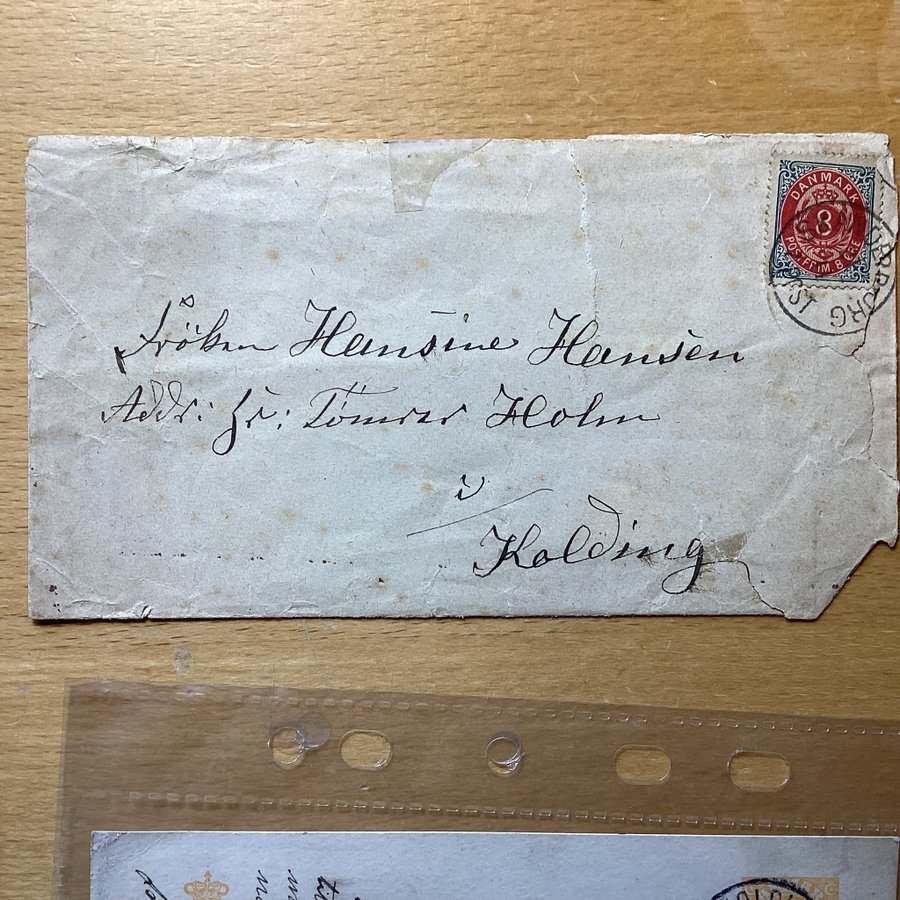 DANMARK
8
POSTFRIM. 8 ØRE
Fröken Hansine Hansen
Addr: Hr: Tømrer Holm
i
Kolding